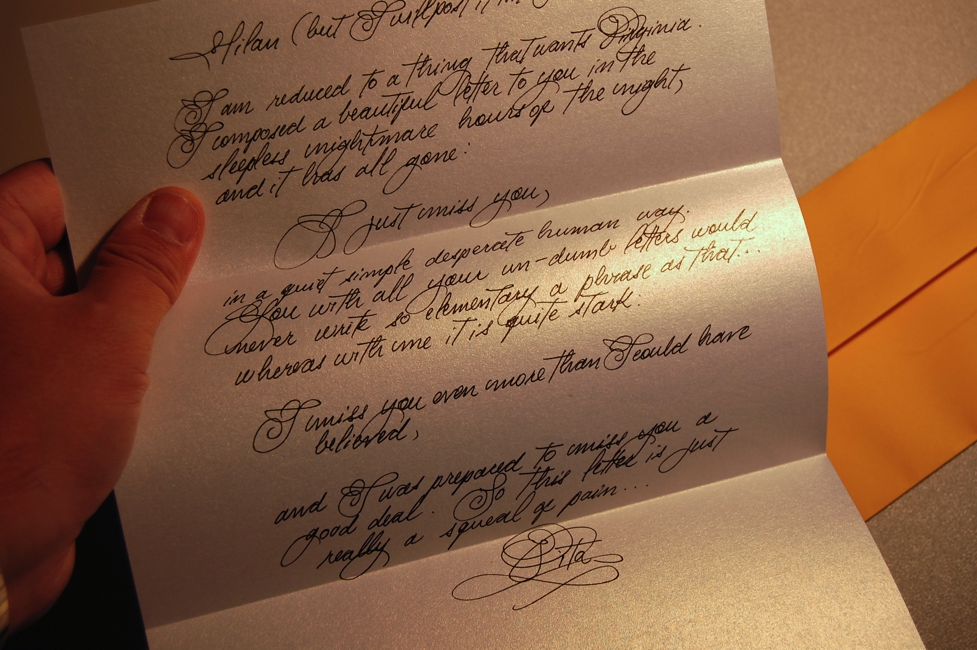 Milan (but I will post it in
I am reduced to a thing that wants Virginia.
I composed a beautiful letter to you in the
sleepless nightmare hours of the night,
and it has all gone:
I just miss you,
in a quiet simple desperate human way.
You with all your un-dumb letters would
never write so elementary a phrase as that...
whereas with me it is quite stark.
I miss you even more than I could have
believed,
and I was prepared to miss you a
good deal. So this letter is just
really a squeal of pain...